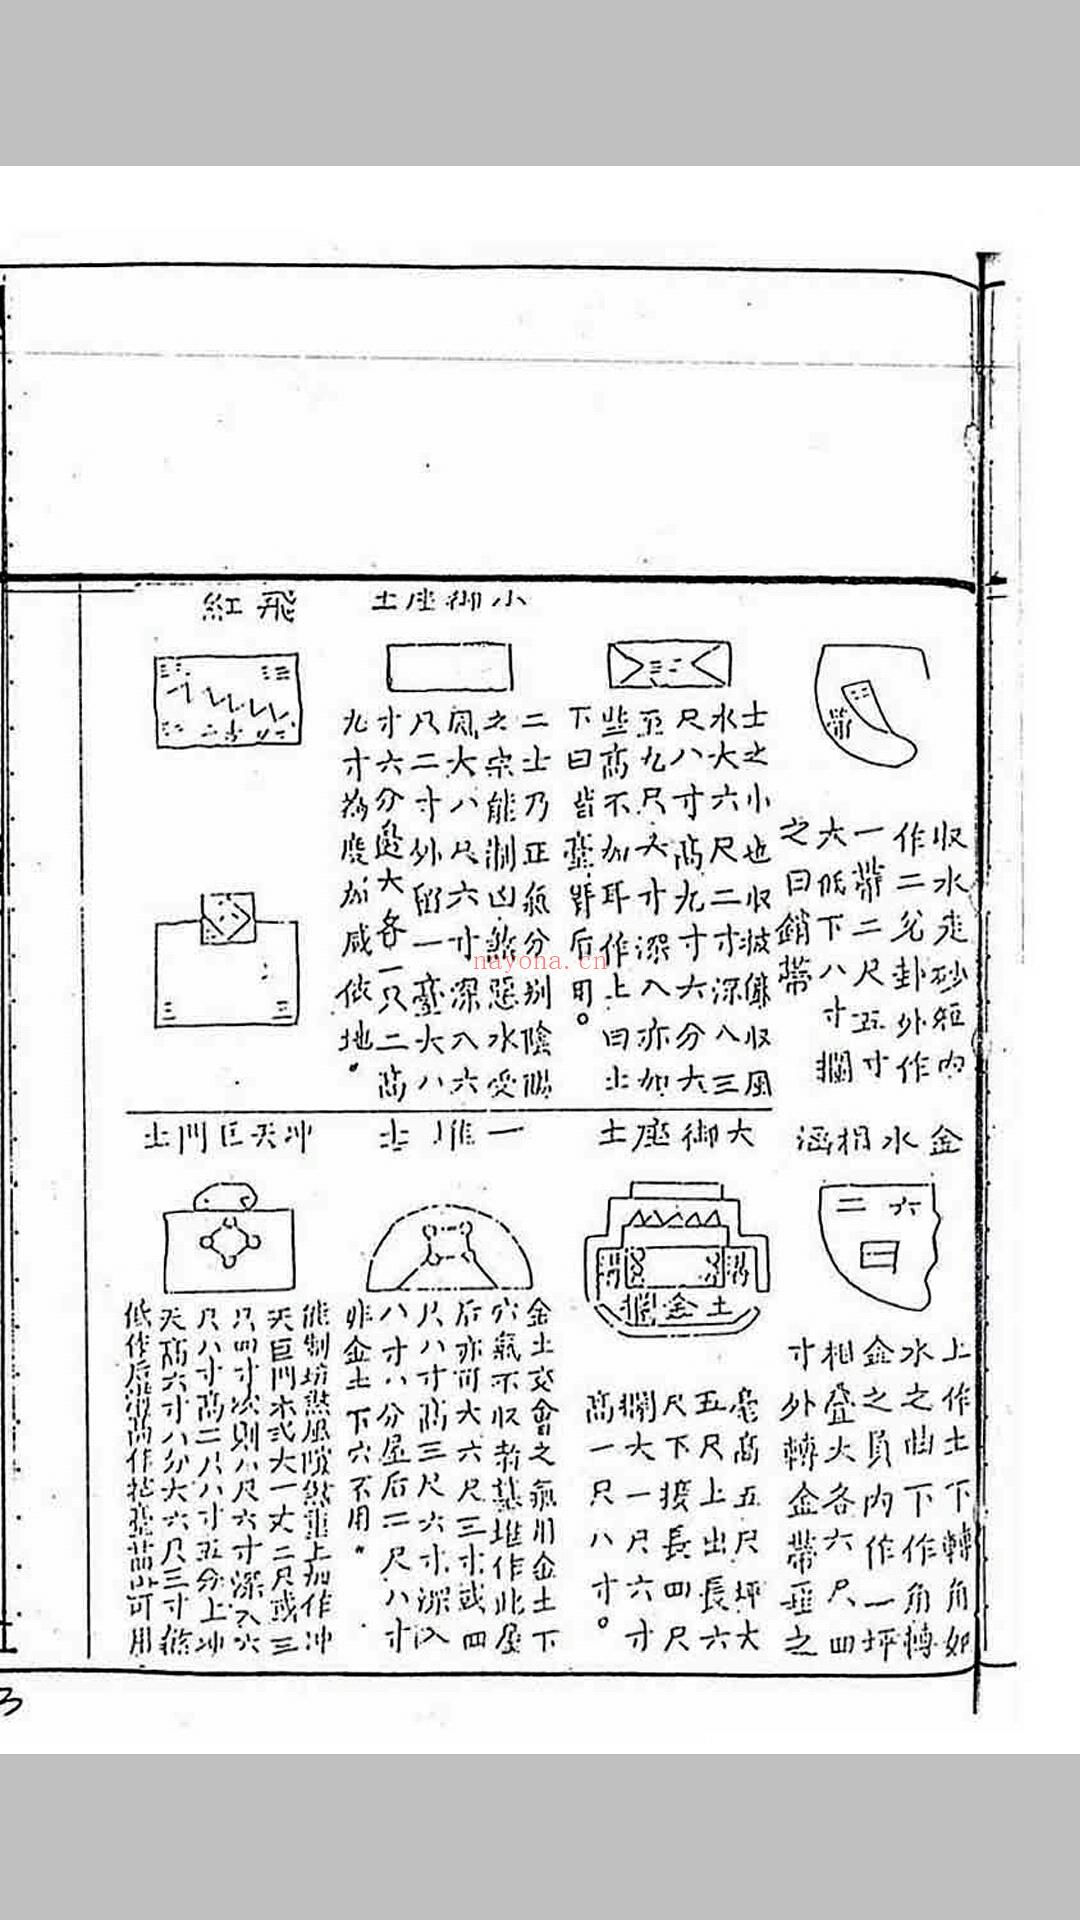 收水走砂短内
作二兊卦外作
一帶二尺五寸
大低下八寸攔
之曰銷帶
士之小也收披㒤收風
水大六尺二寸深八三
尺八寸高九寸六分六
至九尺大寸深入亦加
些高不加耳作上曰土
下曰皆臺野后用。
小御座土
二土乃正氣分别陰陽
之宗能制凶煞惡水受
風大八尺六寸深入六
尺二寸外留一臺大八
寸六分邊大各一尺二高
九寸為度加減依地。
飛紅
nayona.cn
金水相涵
二六
曰
上作土下轉角如
水之曲下作角轉
金之員内作一坪
相疊大各六尺四
寸外轉金帶亜之
大御座土
土金攔
毫高五尺坪大
五尺上出長六
尺下接長四尺
攔大一尺六寸
高一尺八寸。
一堆土
金土交會之氣用金土下
穴氣不收若甚堆作此屋
后亦可大六尺三寸或四
尺八寸高三尺六寸深入
八寸八分屋后二尺八寸
非金土下穴不用。
冲天巨門土
能制坊煞風隙煞重上加作冲
天巨門木式大一丈二尺或三
尺四寸次則八尺六寸深入六
尺八寸高二尺八寸五分上冲
天高六寸八分大六尺三寸餘
低作后高作臺皆可用